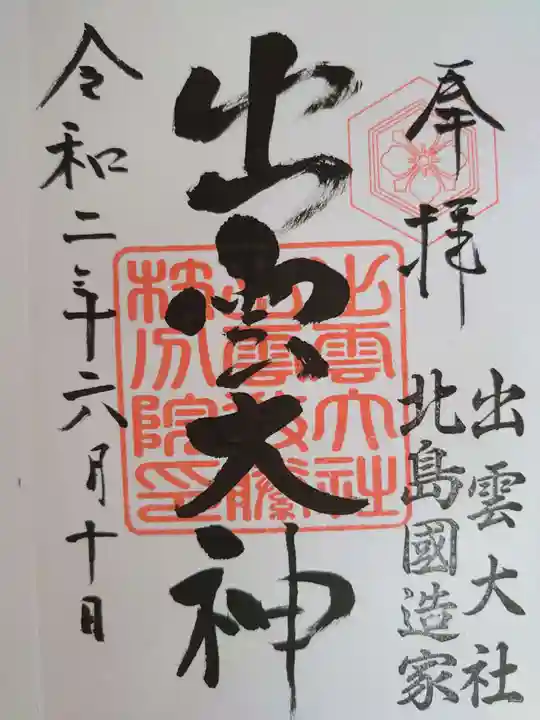 奉拝
出雲大社
北島國造家
出雲大神
令和二年六月十日
出雲大社